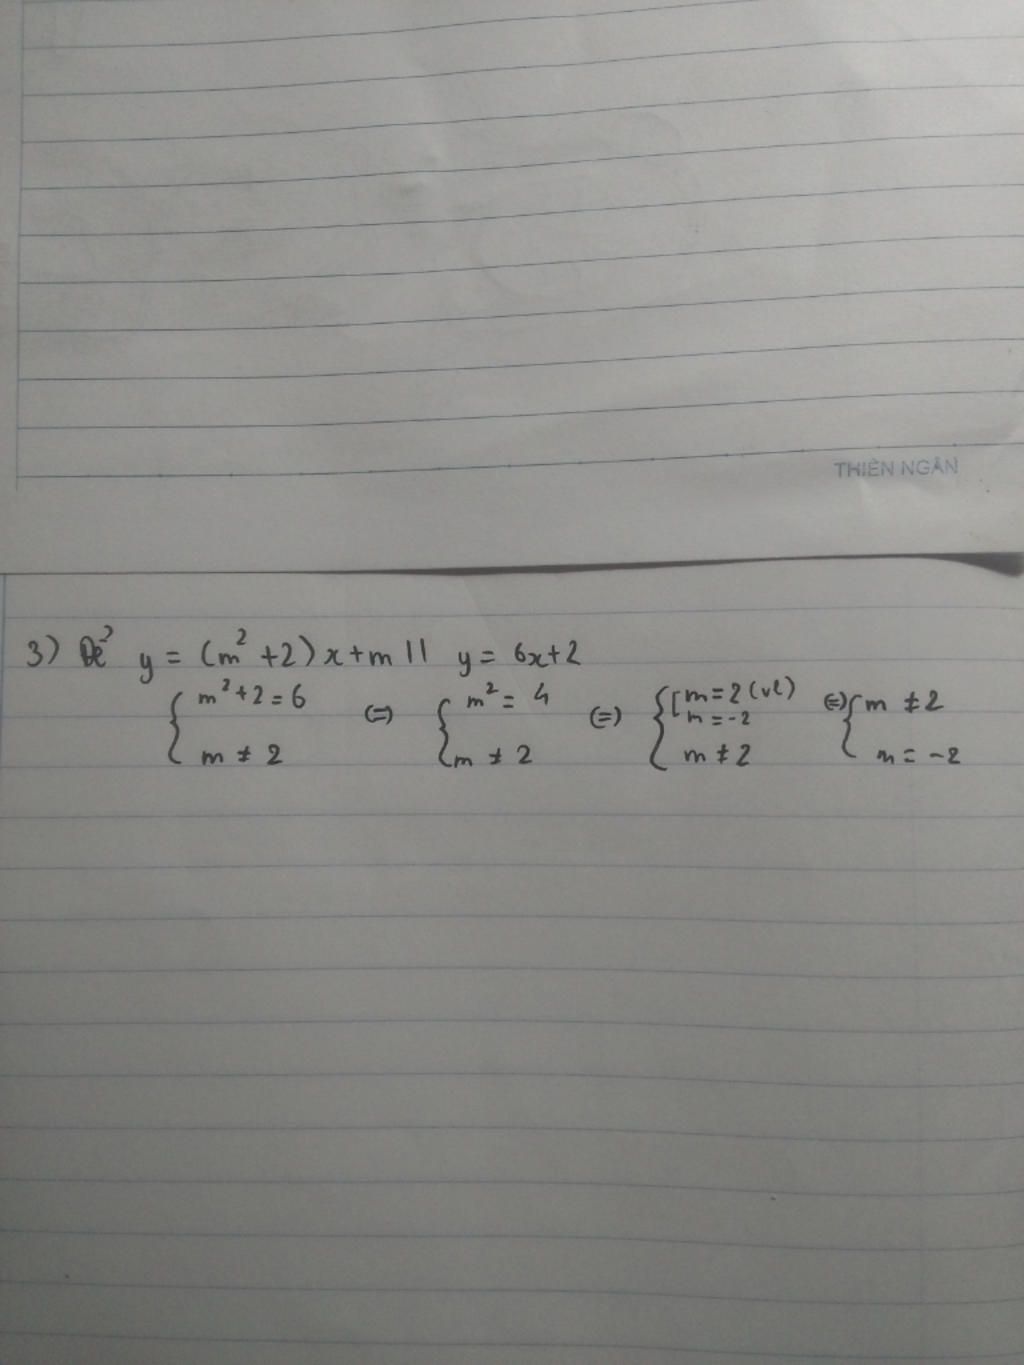 THIÊN NGÂN
3) Để y = (m² + 2)x + m || y = 6x + 2
{ m² + 2 = 6 (=) { m² = 4 (=) { [ m = 2 (vl) (=) { m ≠ 2
m = -2
m ≠ 2 m ≠ 2 m ≠ 2 m = -2